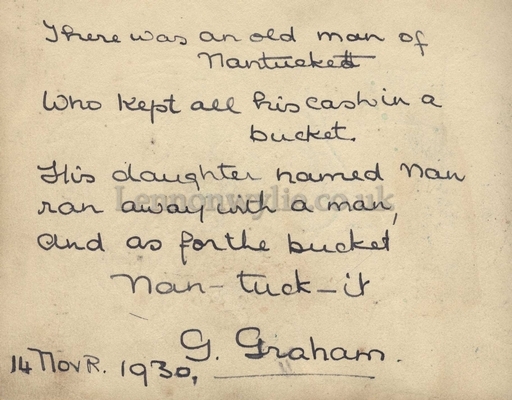 There was an old man of
Nantuckett
Who kept all his cash in a
bucket.
His daughter named Nan
Lennonwylie.co.uk
ran away with a man,
And as for the bucket
Nan-tuck-it
G. Graham.
14 Novr. 1930,